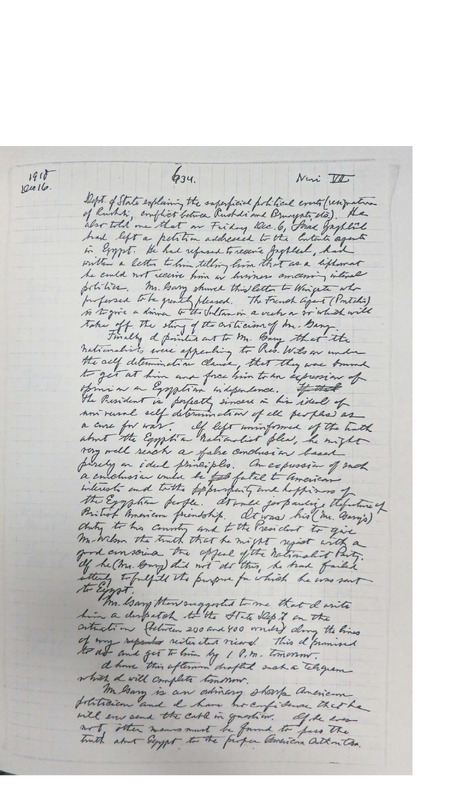 1918
Dec 16.
634.
Nuri VII
Dept of State explaining the superficial political events (resignation
of Rushdi, conflict between Rushdi and Brunyate etc). He
also told me that on Friday Dec. 6, Saad Zaghlul
had left a petition addressed to the Entente agents
in Egypt. He had refused to receive Zaghlul, had
written a letter to him telling him that as a diplomat
he could not receive him on business concerning internal
politics. Mr. Gary showed this letter to Wingate who
professed to be greatly pleased. The French Agent
is to give a dinner to the Sultan in a week or so which will
take off the sting of the criticism of Mr. Gary.
Finally I pointed out to Mr. Gary that the
nationalists were appealing to Pres. Wilson under
the self determination clause, that they were bound
to get at him and force him to an expression of
opinion on Egyptian independence.
The President is perfectly sincere in his ideal of
universal self determination of all peoples as
a cure for war. If left uninformed of the truth
about the Egyptian Nationalist plea, he might
very well reach a false conclusion based
purely on ideal principles. An expression of such
a conclusion would be fatal to American
interests and to the prosperity and happiness of
the Egyptian people, at once jeopardizing the future of
British American friendship. It was his (Mr. Gary's)
duty to his country and to the President to give
Mr. Wilson the truth that he might reject with a
good conscience the appeal of the Nationalist Party.
If he (Mr. Gary) did not do this, he had failed
utterly to fulfill the purpose for which he was sent
to Egypt.
Mr. Gary then suggested to me that I write
him a despatch to the State Dep't on the
situation (between 200 and 400 words) along the lines
of my views. This I promised
to do and get to him by 1 P.M. tomorrow.
I have this afternoon drafted such a telegram
which I will complete tomorrow.
Mr. Gary is an ordinary sharp American
politician and I have no confidence that he
will ever send the cable in question. If he does
not, other means must be found to pass the
truth about Egypt to the proper American